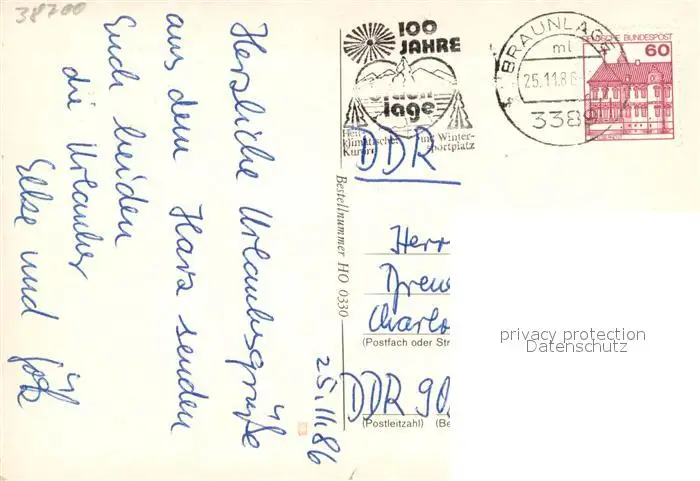 38700
Herzliche Urlaubsgrüße
aus dem Harz senden
Euch beiden
die Urlauber
Else und Götz
25.11.86
100
JAHRE
Braun
lage
Heil-
klimatischer
Kurort
und Winter-
sportplatz
BRAUNLAGE
ml
25.11.86
3389
DEUTSCHE BUNDESPOST
60
DDR
Bestellnummer HO 0330
Herr
(Postfach oder Str
DDR 90
(Postleitzahl) (Be
privacy protection
Datenschutz